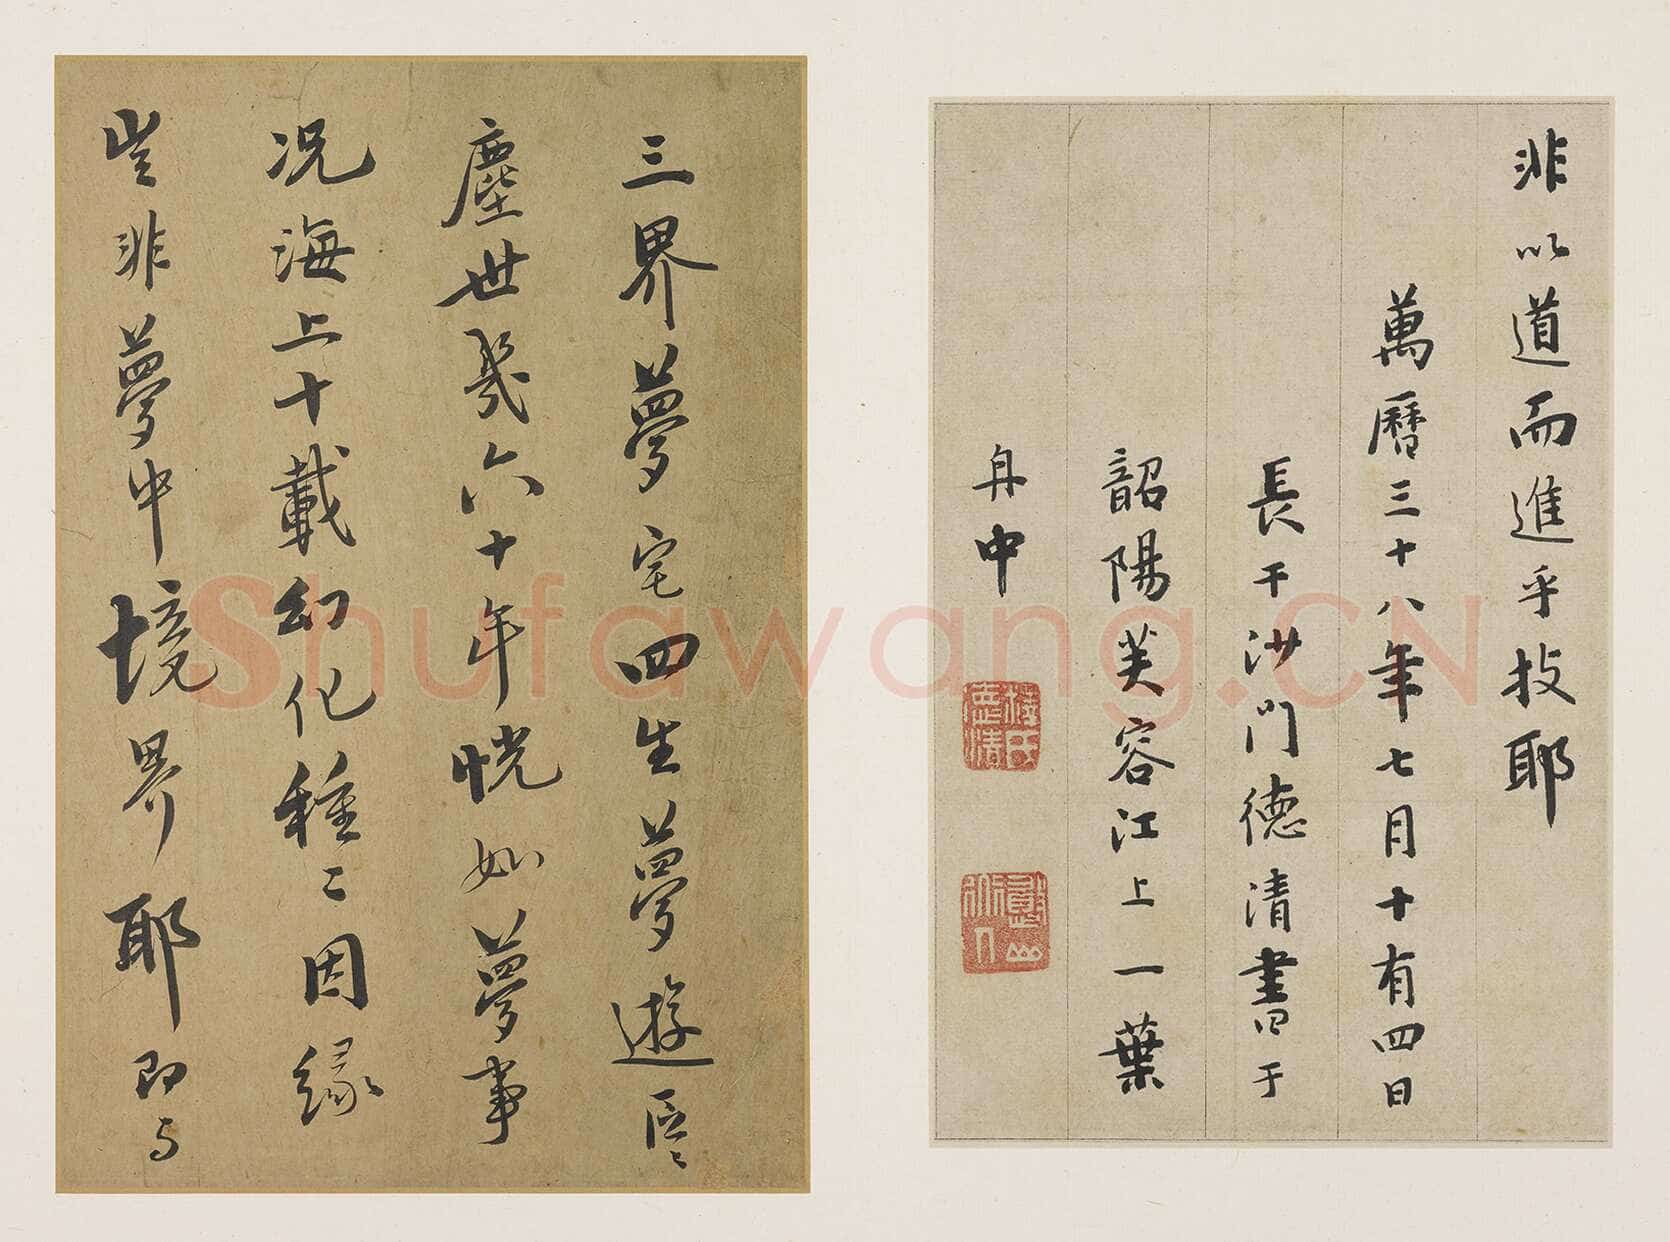 非以道而進乎技耶
萬曆三十八年七月十有四日
長干沙門德清書于
韶陽芙容江上一葉
舟中
德清
三界夢宅四生夢遊區〻
塵世幾六十年恍如夢事
况海上十載幻化種〻因緣
豈非夢中境界耶即与
Shufawang.CN